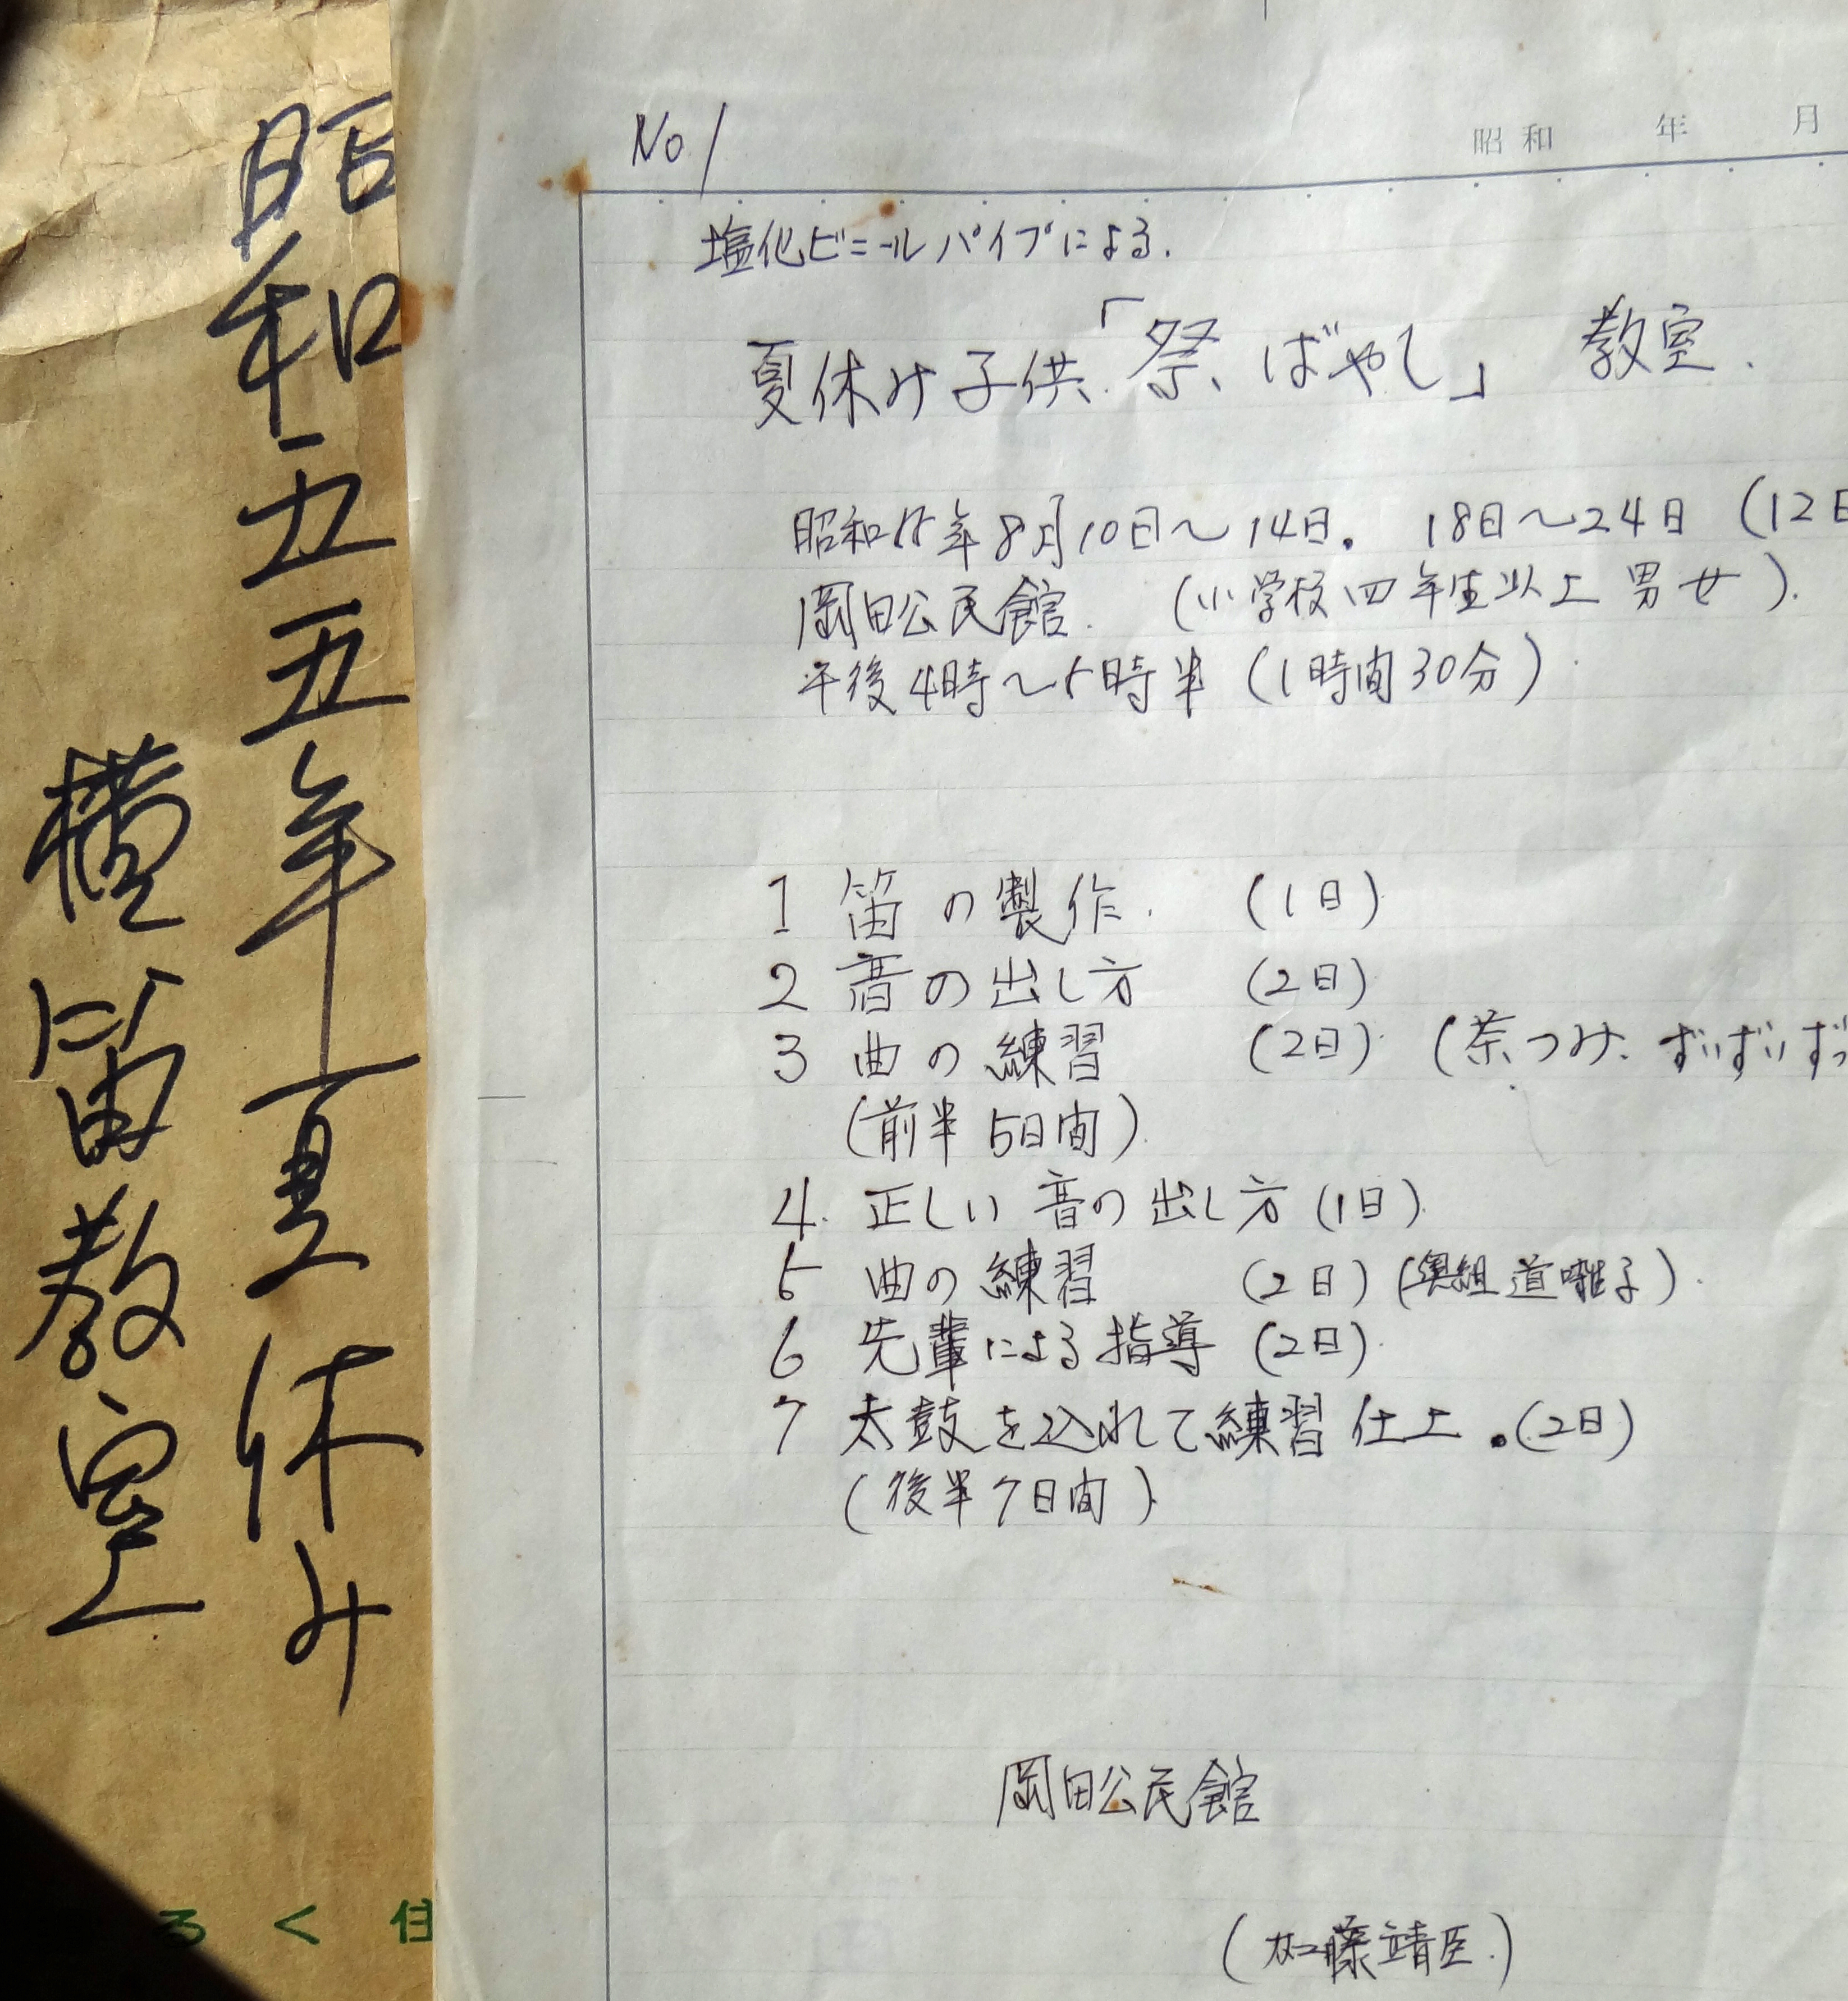 昭和五五年夏休み
横笛教室
る く 住
No 1
昭和 年 月
塩化ビニールパイプによる.
夏休み子供「祭ばやし」教室.
昭和55年8月10日〜14日. 18日〜24日 (12日
岡田公民館. (小学校四年生以上男女).
午後4時〜5時半 (1時間30分)
1 笛の製作. (1日)
2 音の出し方 (2日)
3 曲の練習 (2日) (茶つみ、ずいずいずっ
(前半5日間)
4. 正しい音の出し方 (1日)
5 曲の練習 (2日) (奥組道囃子).
6 先輩による指導 (2日)
7 太鼓を込れて練習仕上.(2日)
(後半7日間)
岡田公民館
(加藤靖臣.)